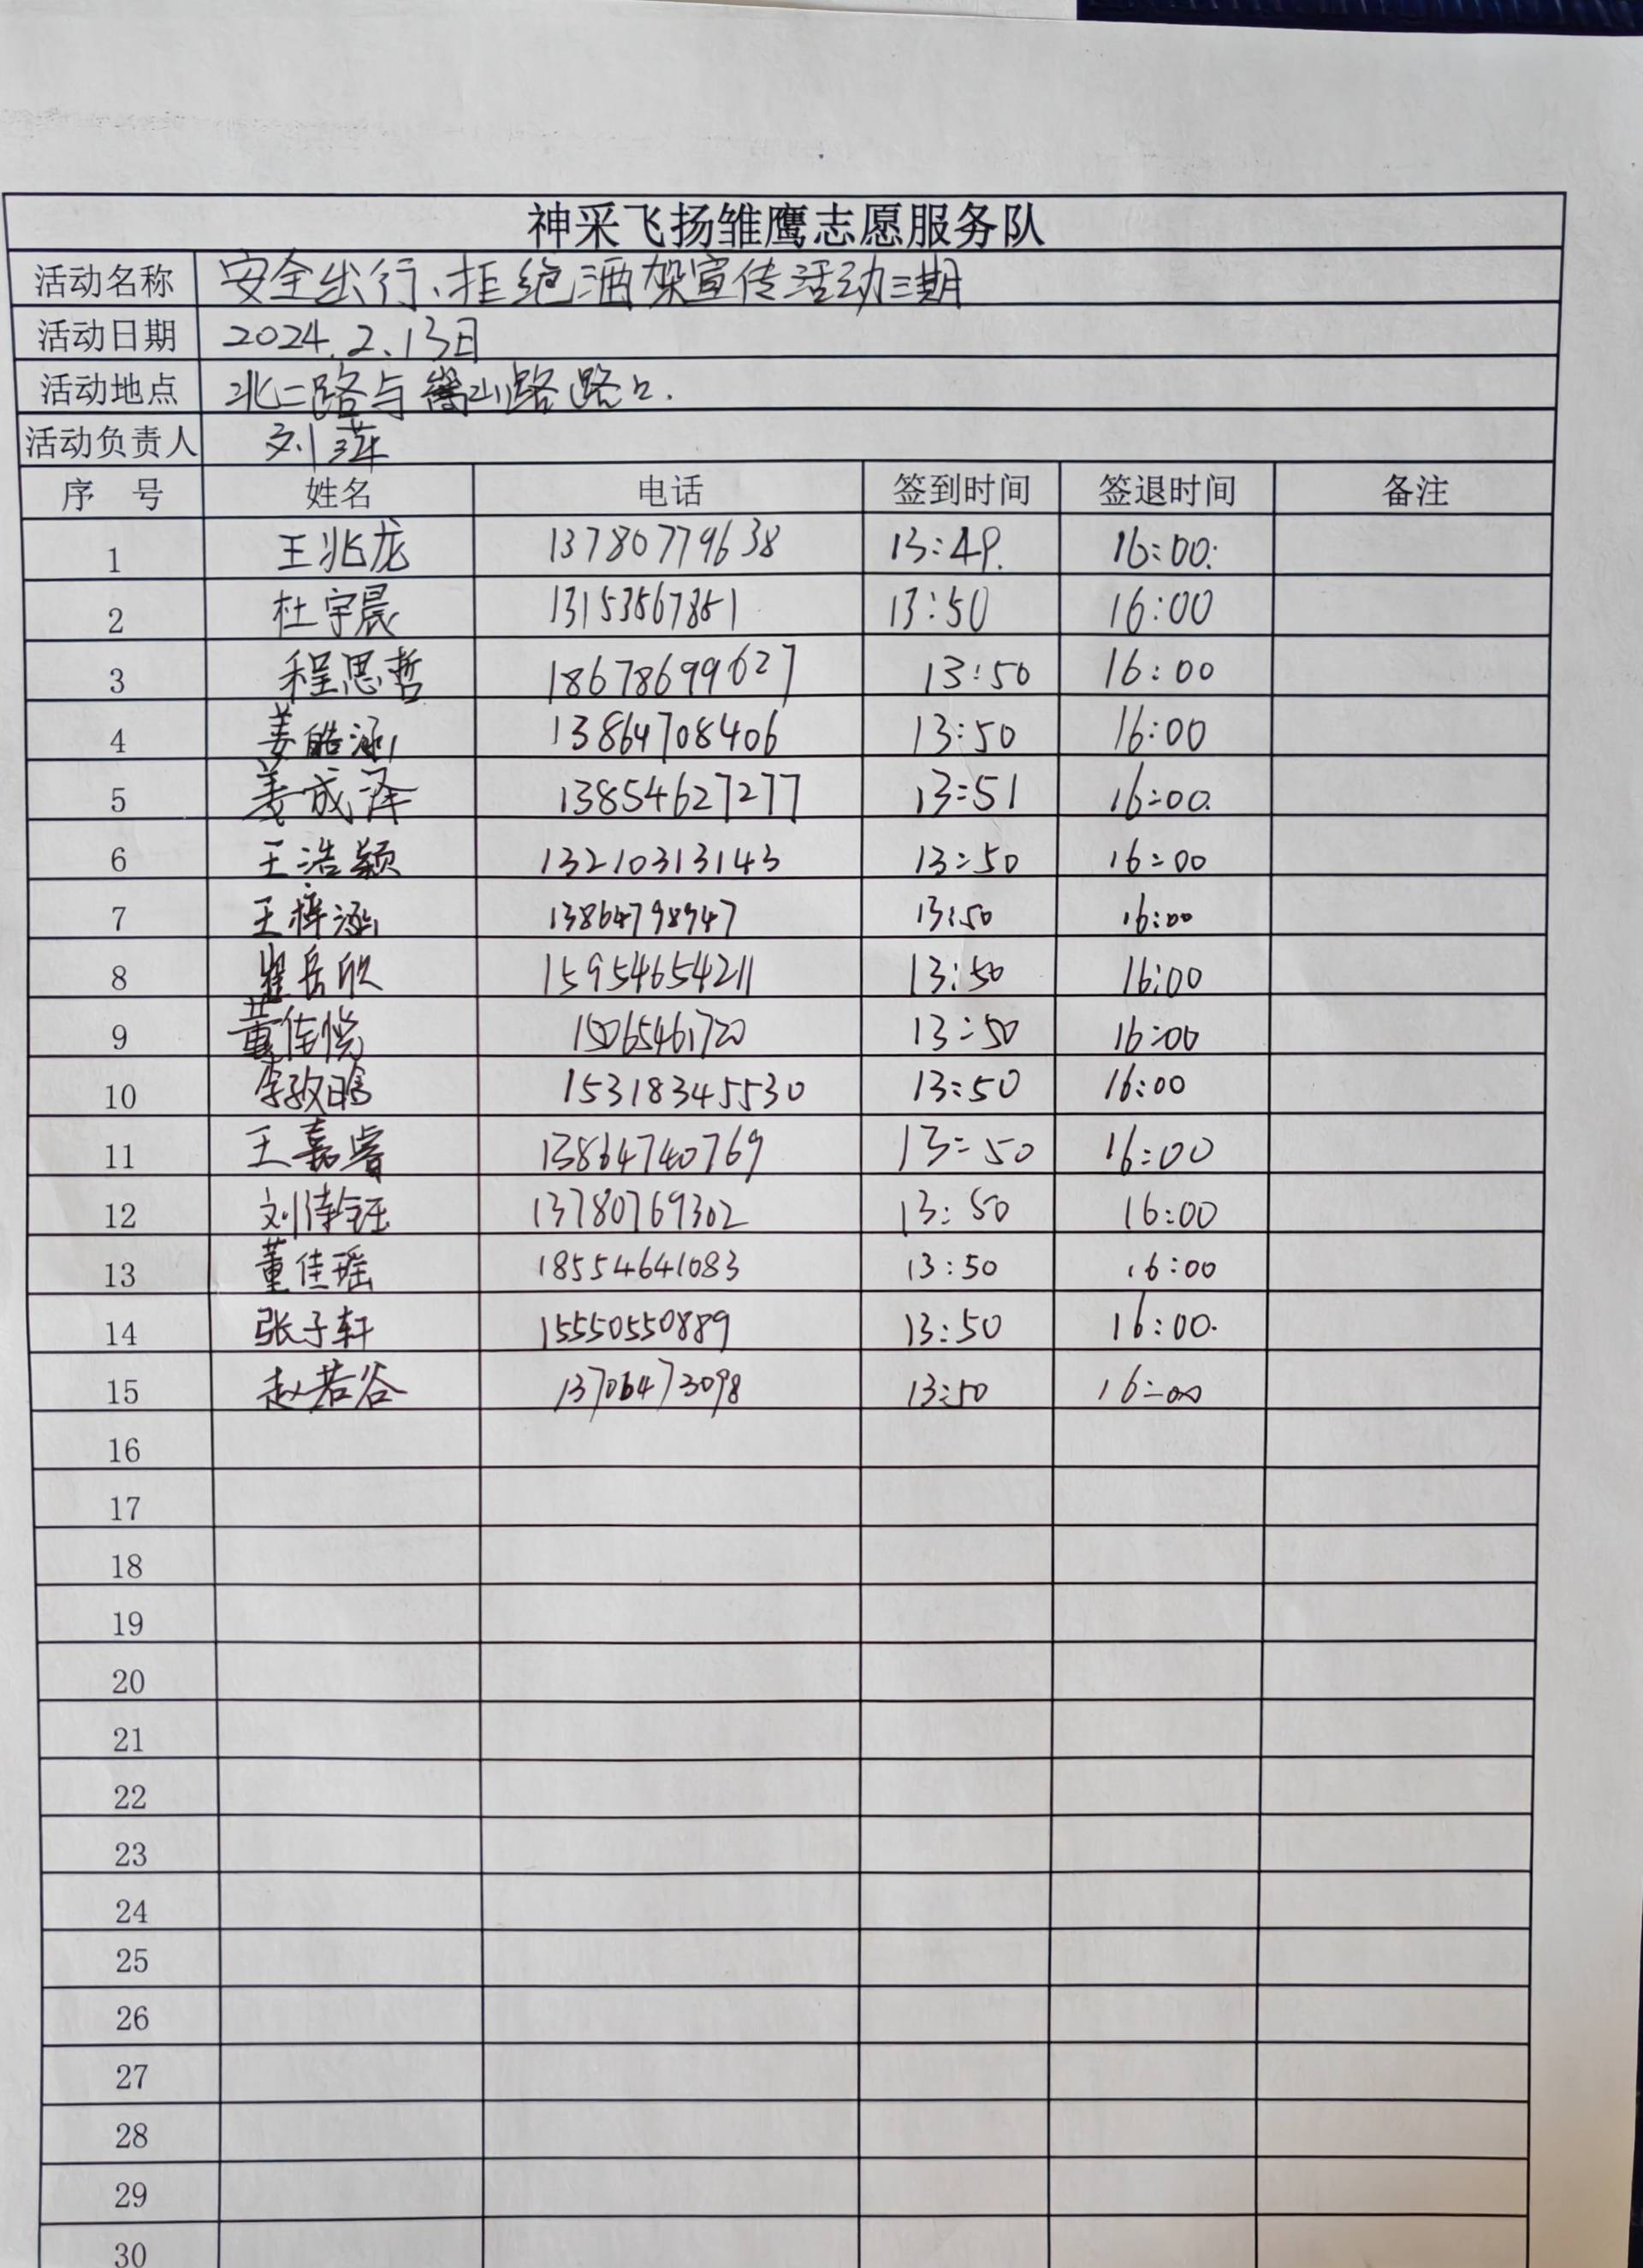 神采飞扬雏鹰志愿服务队
活动名称 安全出行、拒绝酒架宣传活动三期
活动日期 2024.2.13日
活动地点 北二路与嵩山路路口.
活动负责人 刘萍
序 号 姓名 电话 签到时间 签退时间 备注
1 王兆龙 13780779638 13:49. 16:00.
2 杜宇晨 13153567851 13:50 16:00
3 程思哲 18678699627 13:50 16:00
4 姜皓涵 13864708406 13:50 16:00
5 姜成泽 13854627277 13:51 16:00.
6 王浩颖 13210313143 13:50 16:00
7 王梓涵 13864798947 13:50 16:00
8 崔岳欣 15954654211 13:50 16:00
9 董佳悦 15065461720 13:50 16:00
10 李孜晗 15318345530 13:50 16:00
11 王嘉睿 13864740769 13:50 16:00
12 刘 13780769302 13:50 16:00
13 董佳瑶 18554641083 13:50 16:00
14 张子轩 15550550889 13:50 16:00.
15 赵若谷 13706473098 13:50 16:00
16
17
18
19
20
21
22
23
24
25
26
27
28
29
30